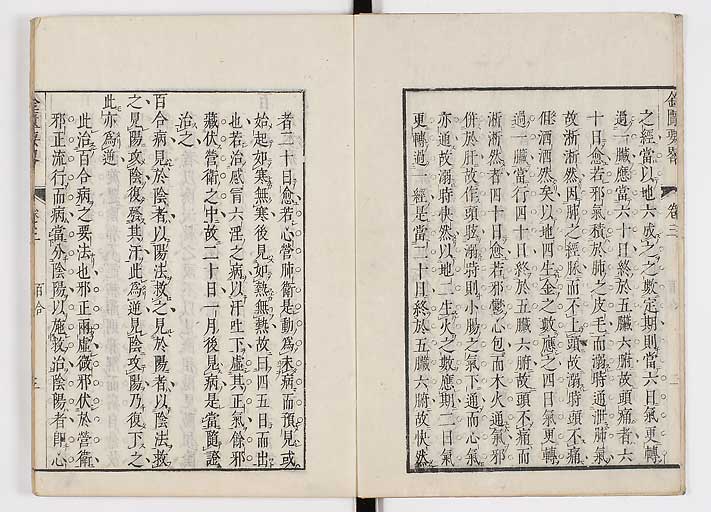 金匱要畧 卷三 百合 二
之經當以地六成之之數定期則當六日氣更轉
過一臟應當六十日終於五臟六腑故頭痛者六
十日愈若邪氣積於肺之皮毛而溺時通泄肺氣
故淅淅然因肺之經脉而不上頭故溺時頭不痛
但洒洒然矣以地四生金之數應之四日氣更轉
過一臟當行四十日終於五臟六腑故頭不痛而
淅淅然者四十日愈若邪鬱心包而木火通氣邪
倂於肝故作頭眩溺時則小腸之氣下通而心氣
亦通故溺時快然以地二生火之數應期二日氣
更轉過一經是當二十日終於五臟六腑故快然
者二十日愈若心營肺衛是動爲未病而預見或
始起如寒無寒後見如熱無熱故曰四五日而出
也若治感冐六淫之病以汗吐下虛其正氣餘邪
藏伏營衛之中故二十日一月後見病是當隨證
治之
百合病見於陰者以陽法救之見於陽者以陰法救
之見陽攻陰復發其汗此爲逆見陰攻陽乃復下之
此亦爲逆
此治百合病之要法也邪正兩虛微邪伏於營衛
邪正流行而病當分陰陽以施救治陰陽者卽心
百合 三